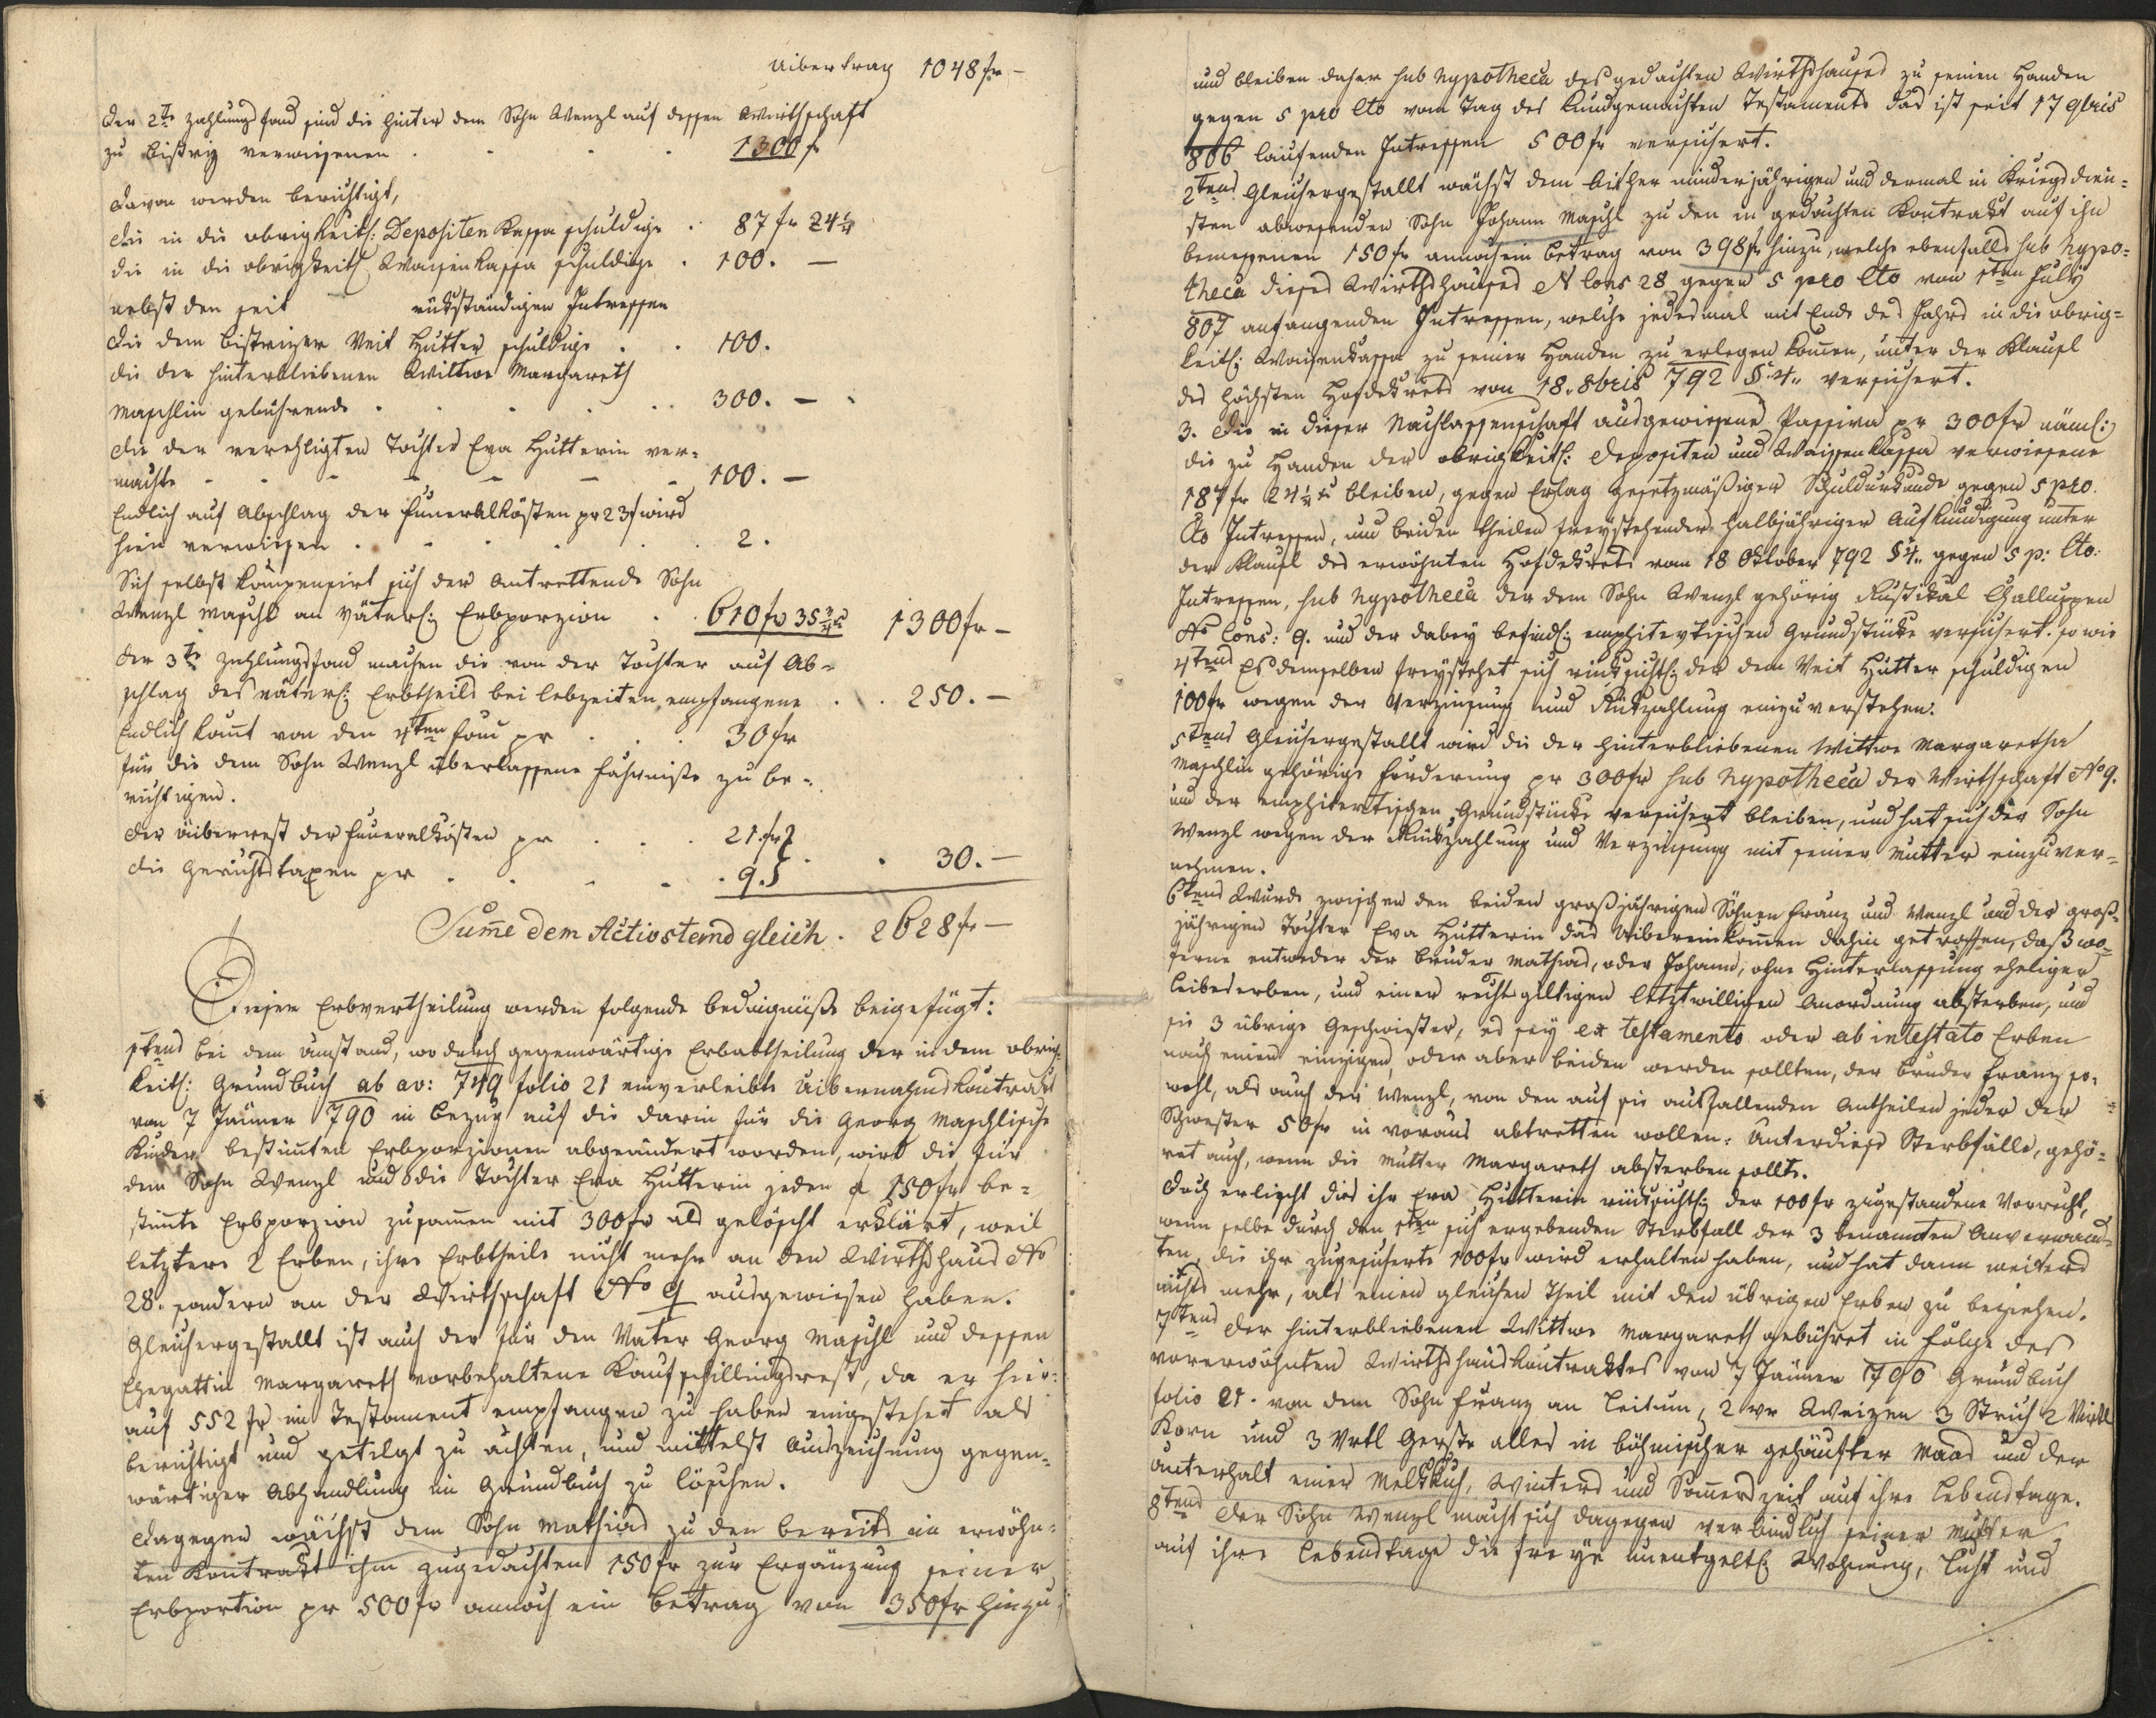 Uibertrag 1048 fr –
Der 2te Zahlungsfond sind die hinter dem Sohn Wenzl auf dessen Wirthschaft
zu Bistriz verwiesenen . . . . 1300 fr
Davon werden berichtigt,
die in die obrigkeitl: Depositen Kassa schuldige . 87 fr 24¼
die in die obrigkeitl. Waisenkassa schuldige . 100. –
nebst den seit rükständigen Intressen
die dem Bistrizer Veit Hutter schuldige . . 100.
die der hinterbliebenen Wittwe Margareth
Maschlin gebührende . . . . . 300. –
die der verehligten Tochter Eva Hutterin ver-
machte - - - - - 100. –
Endlich auf Abschlag der Funeralkösten pr 23 f wird
hier verwiesen . . . . . 2.
Sich selbst kompensirt sich der antrettende Sohn
Wenzl Maschl an väterl: Erbporzion . . 610 fr 35¾ 1300 fr –
Der 3te Zahlungsfond machen die von der Tochter auf Ab-
schlag des väterl: Erbtheils bei Lebzeiten empfangene . . 250. –
Endlich komt von den 4ten Fond pr . . . 30 fr
für die dem Sohn Wenzl überlassene Fahrniße zu be-
richtigen.
Der Überrest der Funeralkösten pr . . . 21. fr
die Gerichtstaxen pr . . . . 9. . . 30. –
Sume dem Activstand gleich . 2628 fr –
Dieser Erbvertheilung werden folgende Bedingnüße beigefügt:
1tens bei dem Umstand, wo durch gegenwärtige Erbabtheilung der in dem obrig-
keitl: Grundbuch ab ao: 749 folio 21 einverleibte Uibernahmskontrakt
von 7 Jänner 790 in Bezug auf die darin für die Georg Maschlische
Kinder bestimten Erbporzionen abgeändert worden, wird die für
den Sohn Wenzl und die Tochter Eva Hutterin jeden a 150 fr be-
stimte Erbporzion zusamen mit 300 fr als gelöscht erklärt, weil
letztere 2 Erben, ihre Erbtheile nicht mehr an den Wirthshaus No
28. sondern an der Wirthschaft No 9 ausgewiesen haben.
Gleichergestallt ist auch der für den Vater Georg Maschl und dessen
Ehegattin Margareth vorbehaltene Kaufschillingsrest, da er hier-
auf 552 fr im Testament empfangen zu haben eingestehet als
berichtigt und getilgt zu achten, und mittelst Auszeichnung gegen-
wärtiger Abhandlung im Grundbuch zu löschen.
Dagegen wächst dem Sohn Mathias zu den bereits in erwöhn-
ten Kontrakt ihm zugedachten 150 fr zur Ergänzung seiner
Erbportion pr 500 fr annoch ein Betrag von 350 fr hinzu,
und bleiben daher sub hypotheca des gedachten Wirthshauses zu seinen Handen
gegen 5 pro Cto vom Tag des kundgemachten Testaments das ist seit 17 9bris
806 laufenden Intressen 500 fr versichert.
2tens Gleichergestallt wächst dem bisher minderjährigen und dermal in Kriegsdien-
sten abwesenden Sohn Johann Maschl zu den in gedachten Kontrakt auf ihn
bemessenen 150 fr annoch ein Betrag von 398 fr hinzu, welche ebenfalls sub hypo-
theca dieses Wirthshauses N Cons 28 gegen 5 pro Cto von 1ten July
807 anfangenden Intressen, welche jedesmal mit Ende des Jahrs in die obrig-
keitl: Waisenkassa zu seiner Handen zu erlegen komen, unter der Klausl
des höchsten Hofdekrets von 18. 8bris 792 §. 4. versichert.
3. Die in dieser Nachlassenschaft ausgewiesene Passiva pr 300 fr näml:
die zu Handen der obrigkeitl: Depositen und Waisenkassa verwiesene
187 fr 24¼ bleiben, gegen Erlag gesetzmäßiger Schuldurkunde gegen 5 pro
Cto Intressen, und beiden Theilen freystehender halbjähriger Aufkündigung unter
der Klausl des erwöhnten Hofdekrets vom 18 Oktober 792 § 4. gegen 5 p: Cto:
Intressen, sub hypotheca der dem Sohn Wenzl gehörig Rustikal Challuppen
No Cons: 9. und der dabey befindl: emphitevtischen Grundstücke versichert. so wie
4tens Es demselben freystehet sich rücksichtl: der dem Veit Hutter schuldigen
100 fr wegen der Verzinsung und Rükzahlung einzuverstehen.
5tens Gleichergestallt wird die der hinterbliebenen Wittwe Margaretha
Maschlin gehörige Forderung pr 300 fr sub hypotheca der Wirthschaft No 9.
und der emphitevtischen Grundstücke versichert bleiben, und hat sich der Sohn
Wenzl wegen der Rükzahlung und Verzinsung mit seiner Mutter einzuver-
nehmen.
6tens Wurde zwischen den beiden großjährigen Söhnen Franz und Wenzl und der groß-
jährigen Tochter Eva Hutterin das Uibereinkomen dahin getroffen, daß wo-
ferne entweder der Bruder Mathias, oder Johann, ohne Hinterlassung eheliger
Leibeserben, und einer rechtsgiltigen letztwilligen Anordnung absterben, und
sie 3 übrige Geschwister, es sey ex testamento oder ab intestato Erben
nach einen einzigen, oder aber beiden werden sollten, der Bruder Franz so-
wohl, als auch der Wenzl, von den auf sie ausfallenden Antheilen jeder der
Schwester 50 fr in voraus abtretten wollen. Unter diese Sterbfälle, gehö-
ret auch, wenn die Mutter Margareth absterben sollte.
Doch erlischt dies ihr Eva Hutterin rücksichtl: der 100 fr zugestandene Vorrecht,
wenn selbe durch den 1ten sich ergebenden Sterbfall der 3 benannten Anverwand-
ten, die ihr zugesicherte 100 fr wird erhalten haben, und hat dann weiters
nichts mehr, als einen gleichen Theil mit den übrigen Erben zu beziehen.
7tens Der hinterbliebenen Wittwe Margareth gebühret in Folge des
vorerwöhnten Wirthshauskontraktes von 7 Jänner 790 Grundbuch
folio 21. von dem Sohn Franz an Leitum, 2 vr Weizen 3 Strich 2 Virtl
Korn und 3 Vrtl Gerste alles in böhmischer gehäufter Maas und der
Unterhalt einer Melkkuh, Winters und Somerszeit auf ihre Lebenstage.
8tens Der Sohn Wenzl macht sich dagegen verbindlich seiner Mutter
auf ihre Lebenstage die freye unentgeltl: Wohnung, Licht und